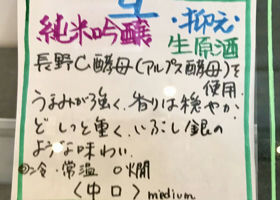 純米吟醸
・抑え
生原酒
長野C酵母(アルプス酵母)を
使用
うまみが強く、香りは穏やか
どしっと重く、いぶし銀の
ような味わい
冷・常温 ○燗
(中口) medium